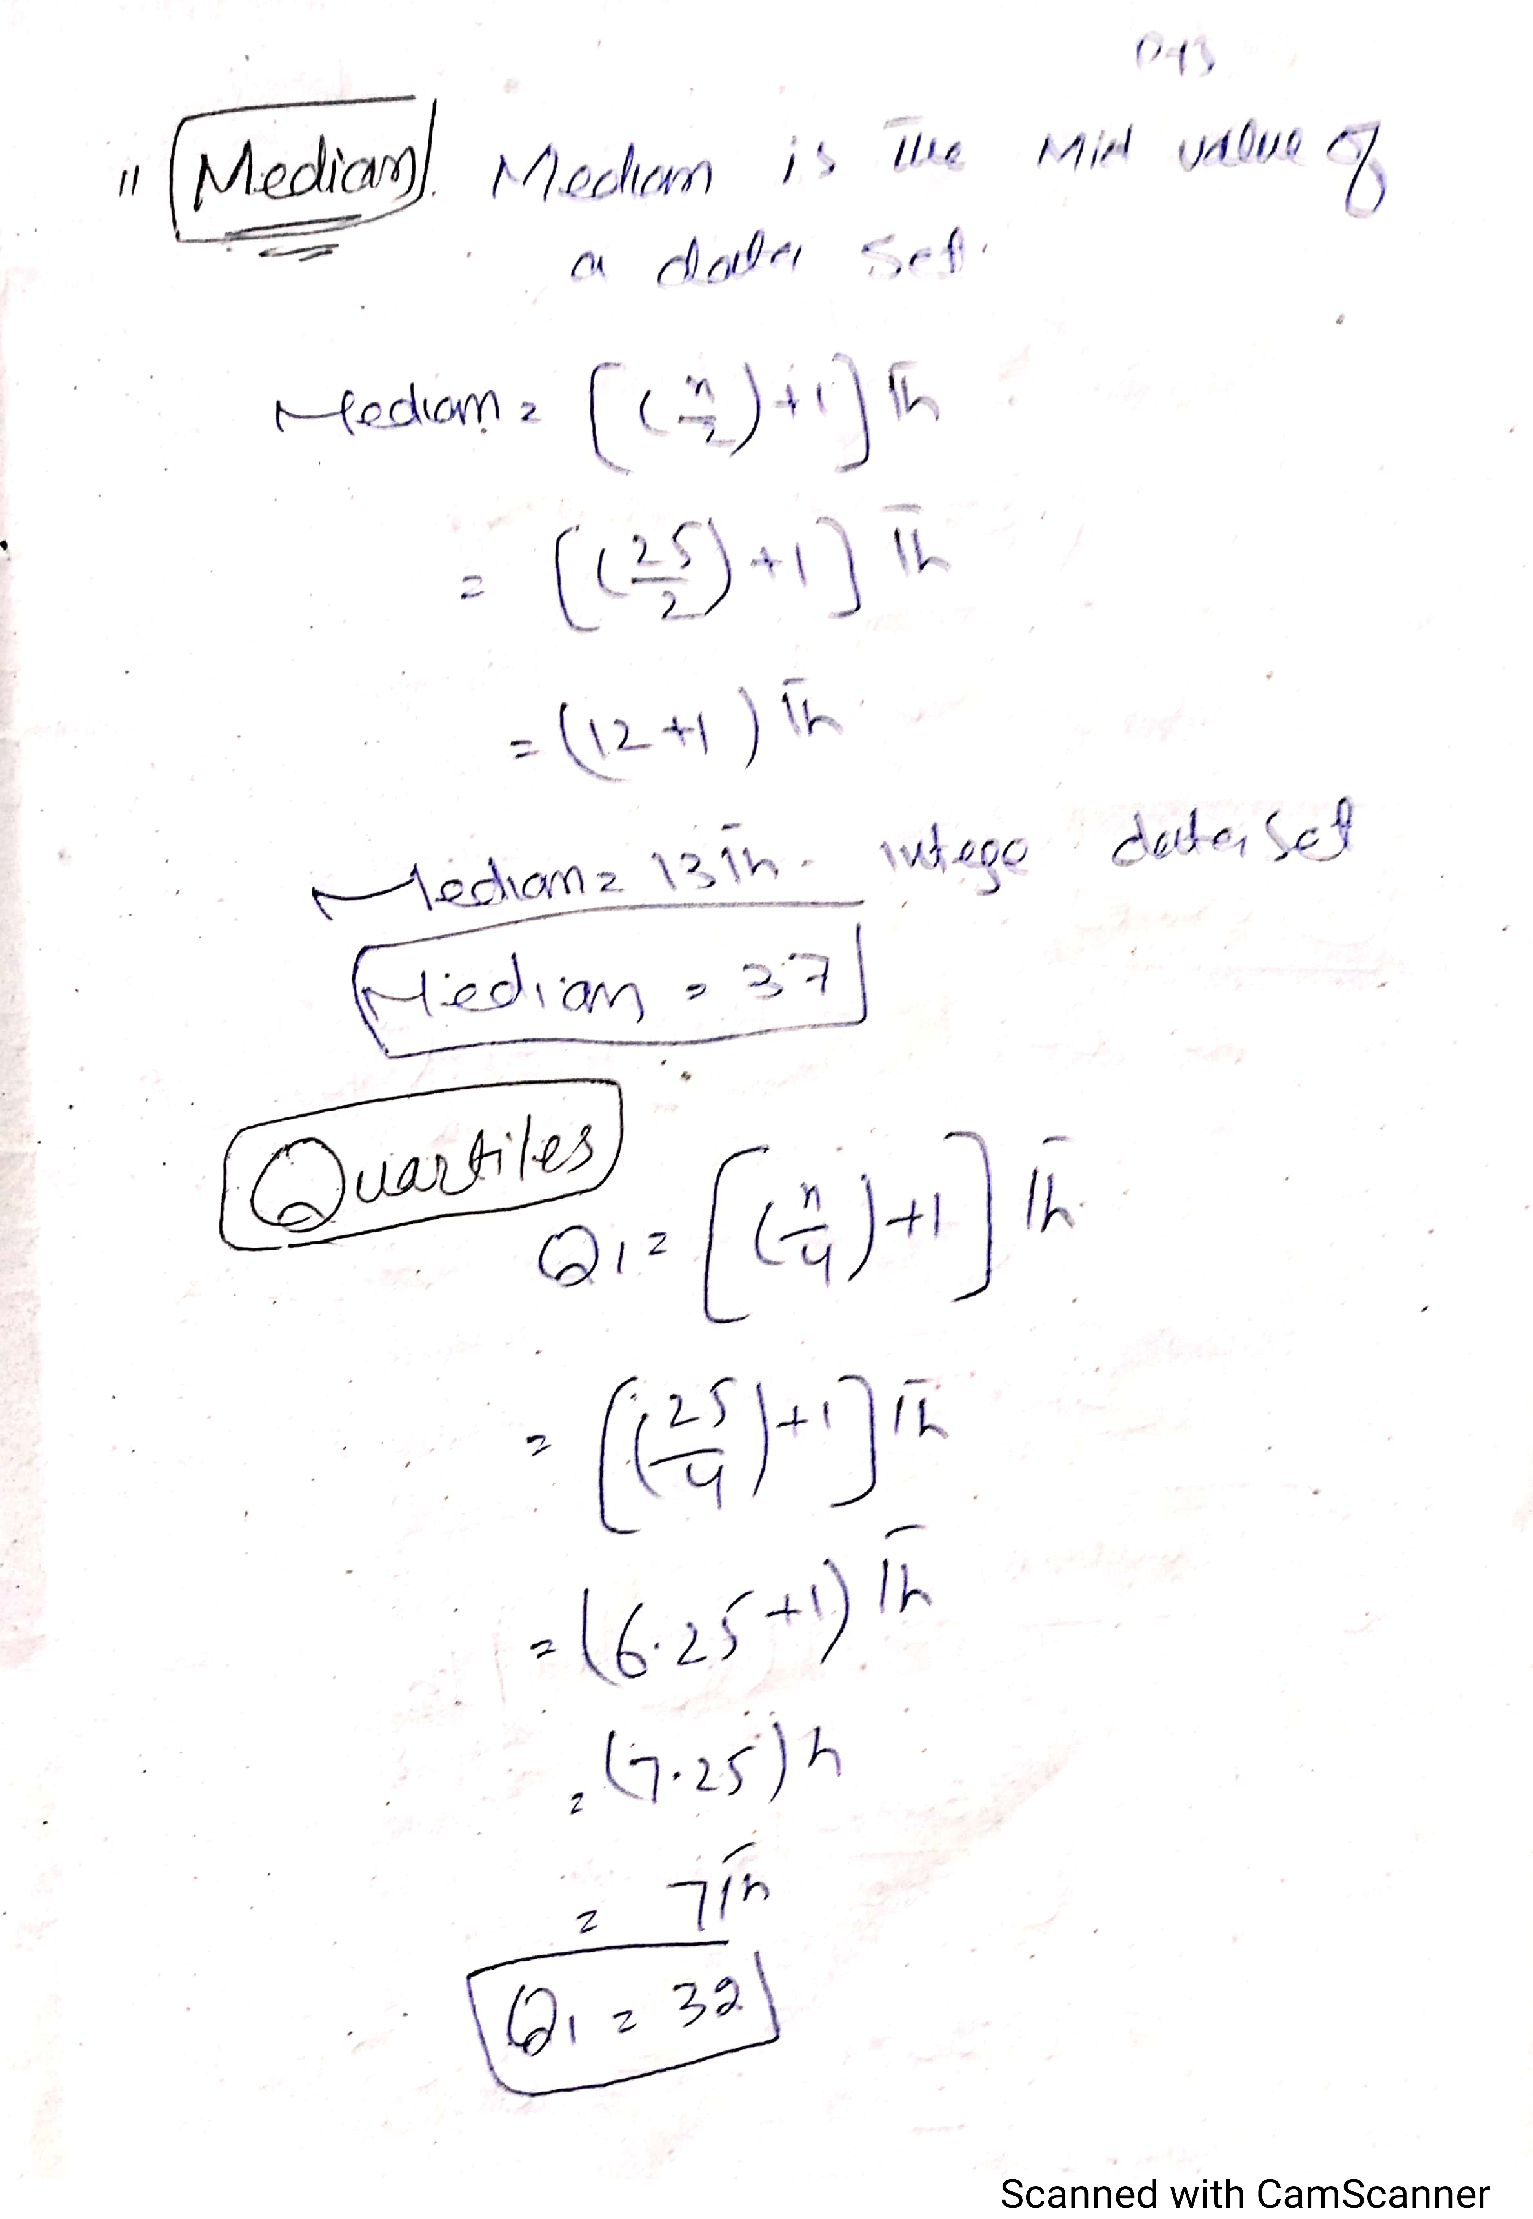 " Median. Median is the Mid value of
a data set.
Median = [(n/2)+1]th
= [(25/2)+1]th
= (12+1)th
Median = 13th. data set
Median = 37
Quartiles
Q1 = [(n/4)+1]th
= [(25/4)+1]th
= (6.25+1)th
= (7.25)h
= 7th
Q1 = 32
Scanned with CamScanner